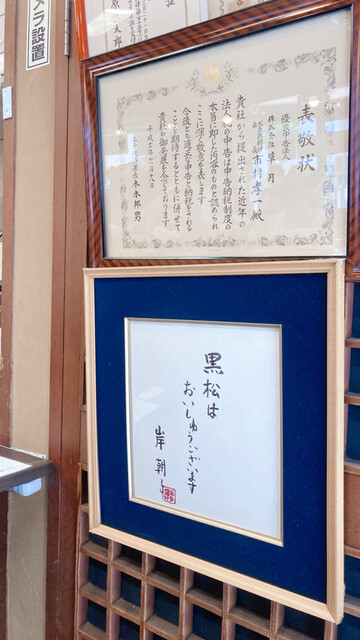 カメラ設置
原太郎
表敬状
優良申告法人
株式会社 草月
市村孝一殿
貴社から提出された近年の
法人税の申告は申告納税制度の
本旨に即した内容のものと認められ
ここに深く敬意を表します
今後とも適正な申告と納税をされる
ことを期待するとともに併せて
貴社の御発展を念じております
黒松は
おいしゅうございます
岸朝子